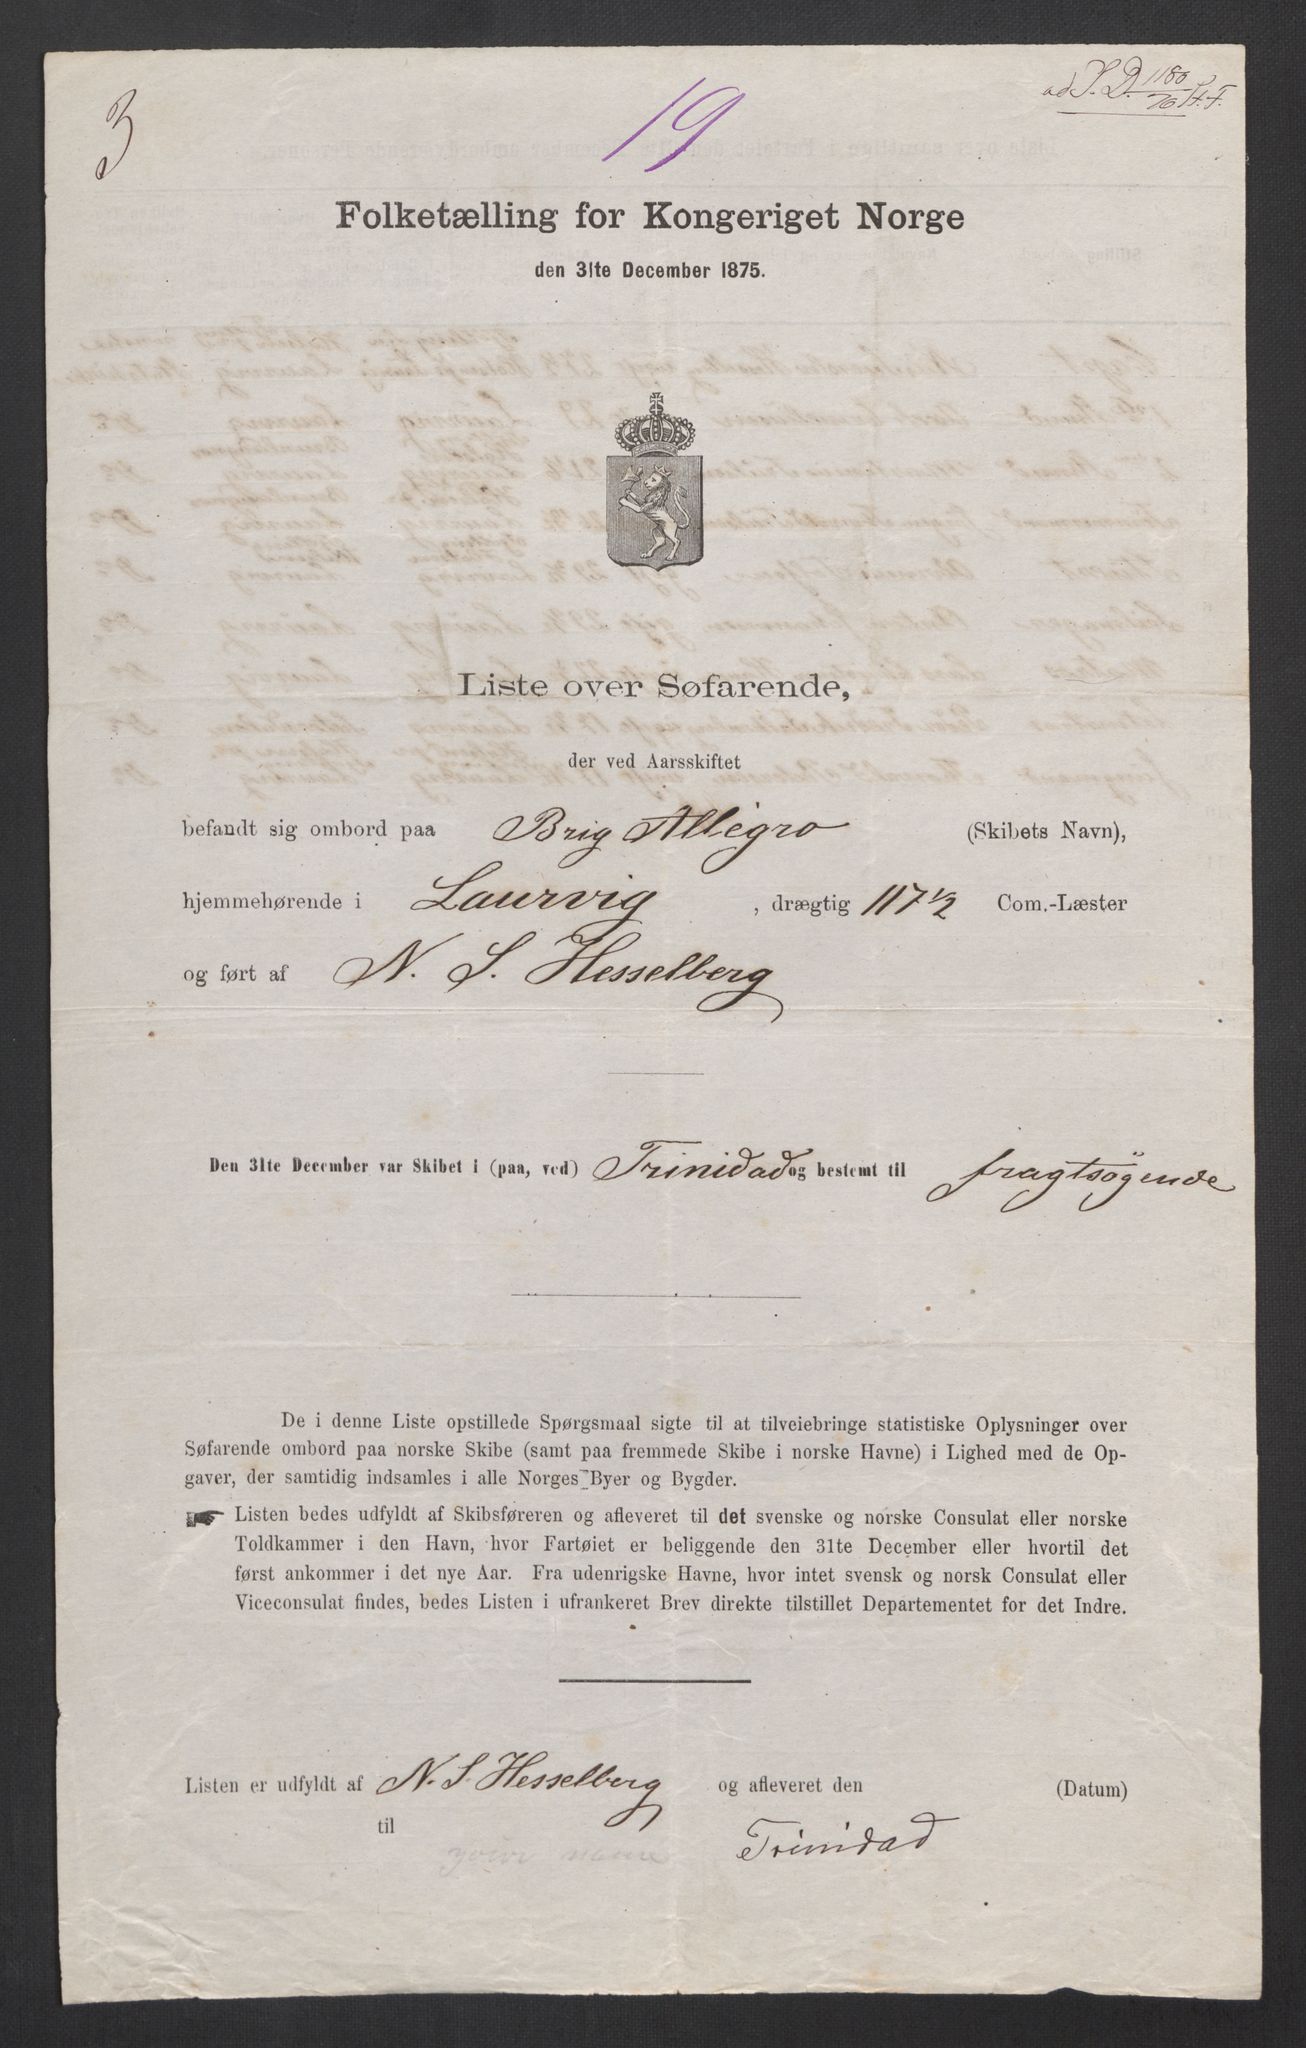 3
19
ad S. D. 1180/76 H. F.
Folketælling for Kongeriget Norge
den 31te December 1875.
Liste over Søfarende,
der ved Aarsskiftet
befandt sig ombord paa Brig Allegro (Skibets Navn),
hjemmehørende i Laurvig, drægtig 117 1/2 Com.-Læster
og ført af N. S. Hesselberg
Den 31te December var Skibet i (paa, ved) Trinidad og bestemt til fragtsøgende
De i denne Liste opstillede Spørgsmaal sigte til at tilveiebringe statistiske Oplysninger over
Søfarende ombord paa norske Skibe (samt paa fremmede Skibe i norske Havne) i Lighed med de Op-
gaver, der samtidig indsamles i alle Norges Byer og Bygder.
Listen bedes udfyldt af Skibsføreren og afleveret til det svenske og norske Consulat eller norske
Toldkammer i den Havn, hvor Fartøiet er beliggende den 31te December eller hvortil det
først ankommer i det nye Aar. Fra udenrigske Havne, hvor intet svensk og norsk Consulat eller
Viceconsulat findes, bedes Listen i ufrankeret Brev direkte tilstillet Departementet for det Indre.
Listen er udfyldt af N. S. Hesselberg og afleveret den (Datum)
til your name Trinidad